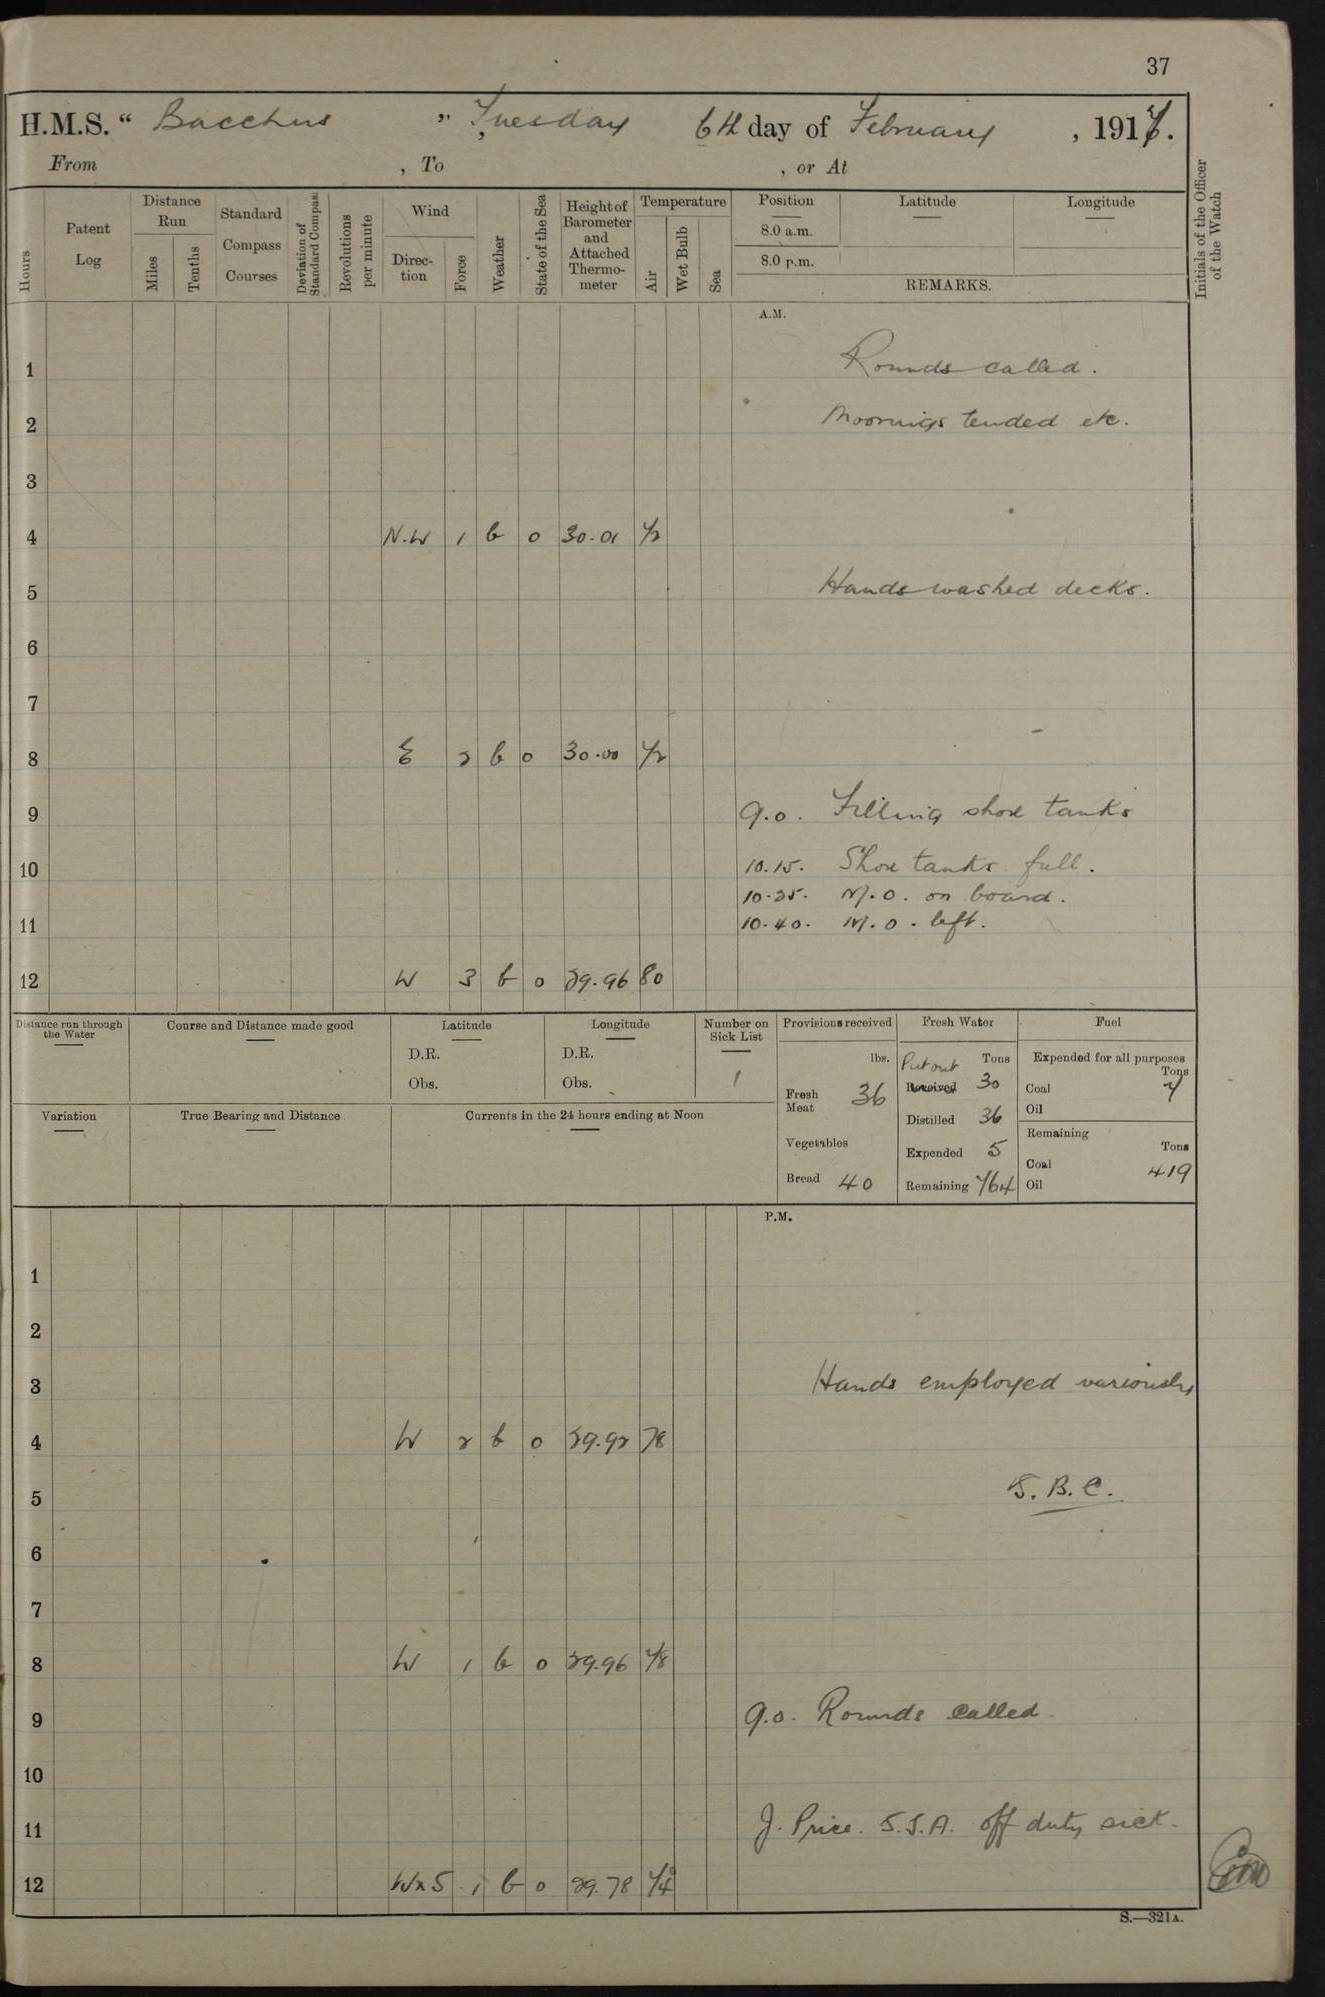 37
H.M.S. “ Bacchus ” Tuesday 6th day of February , 1917.
From , To , or At
Hours
Patent Log
Distance Run
Miles
Tenths
Standard Compass Courses
Deviation of Standard Compass
Revolutions per minute
Wind
Direction
Force
Weather
State of the Sea
Height of Barometer and Attached Thermometer
Temperature
Air
Wet Bulb
Sea
Position
8.0 a.m.
8.0 p.m.
Latitude
Longitude
REMARKS.
Initials of the Officer of the Watch
A.M.
1 Rounds called.
2 Moorings tended etc.
3
4 N.W 1 b 0 30.01 72
5 Hands washed decks.
6
7
8 E 2 b 0 30.00 72
9 9.0. Filling shore tanks
10 10.15. Shore tanks full.
10.25. M.O. on board.
11 10.40. M.O. left.
12 W 3 b 0 29.96 80
Distance run through the Water
Course and Distance made good
Latitude
D.R.
Obs.
Longitude
D.R.
Obs.
Number on Sick List
1
Variation
True Bearing and Distance
Currents in the 24 hours ending at Noon
Provisions received
lbs.
Fresh Meat 36
Vegetables
Bread 40
Fresh Water
Tons
Put out
Received 30
Distilled 36
Expended 5
Remaining 764
Fuel
Expended for all purposes
Tons
Coal 7
Oil
Remaining
Tons
Coal 419
Oil
P.M.
1
2
3 Hands employed variously
4 W 2 b 0 29.92 78
5 S.B.C.
6
7
8 W 1 b 0 29.96 78
9 9.0. Rounds called.
10
11 J. Price. S.S.A. off duty sick.
12 WxS 1 b 0 29.78 74
S.—321A.